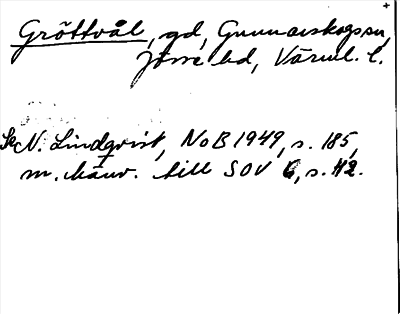 Gröttvål, gd, Gunnarskogs sn,
Jösse hd, Värml. l.
Se N. Lindqvist, NoB 1949, s. 185,
m. hänv. till SOV 6, s. 42.